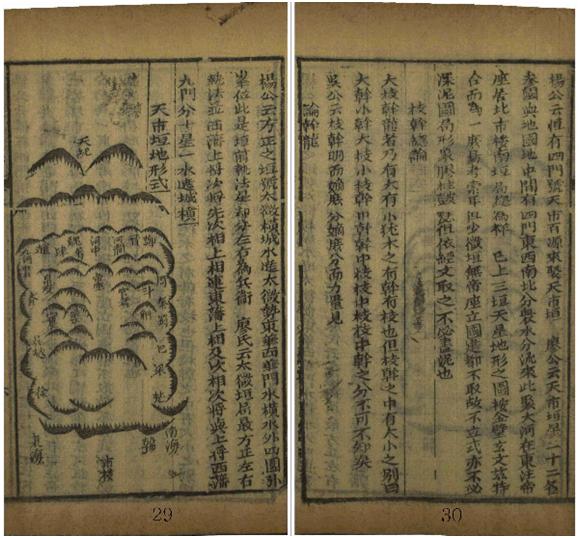 楊公云方正之垣號太微橫城水遶太微勢東華西華門水橫水外四圍
峯位此是垣前執法星却分左右為兵衛 廖氏云太微垣局最方正左右
執法並西藩上將次將先次相上相連東藩上相及次相次將與上將西藩
九門分十星一水遶城橫
天市垣地形式
天紀
河中
斗
蜀
巴
梁
楚
韓
南海
市樓
徐
越
齊
北海
29
楊公云垣有四門號天市百源來聚天市垣 廖公云天市垣星二十二名
參關與地國地中間有四門東西南北分眾水分流來此聚大河在東注帝
座居北市樓南垣局總為祥 已上三垣天星地形之圖按金壁玄文兹特
合而為一庶易考索耳但少微垣無帝座立國建都不取故不立式亦不必
深泥圖局形象依經文取之不必盡泥也
枝幹總論
大枝幹龍者乃有大有小犹木之有幹有枝也但枝幹之中有大小之別曰
大幹小幹大枝小枝幹中幹幹中枝枝中枝枝中幹之分不可不知矣
吳公云枝幹明而嫡庶分嫡庶分而力量見
論幹龍
30